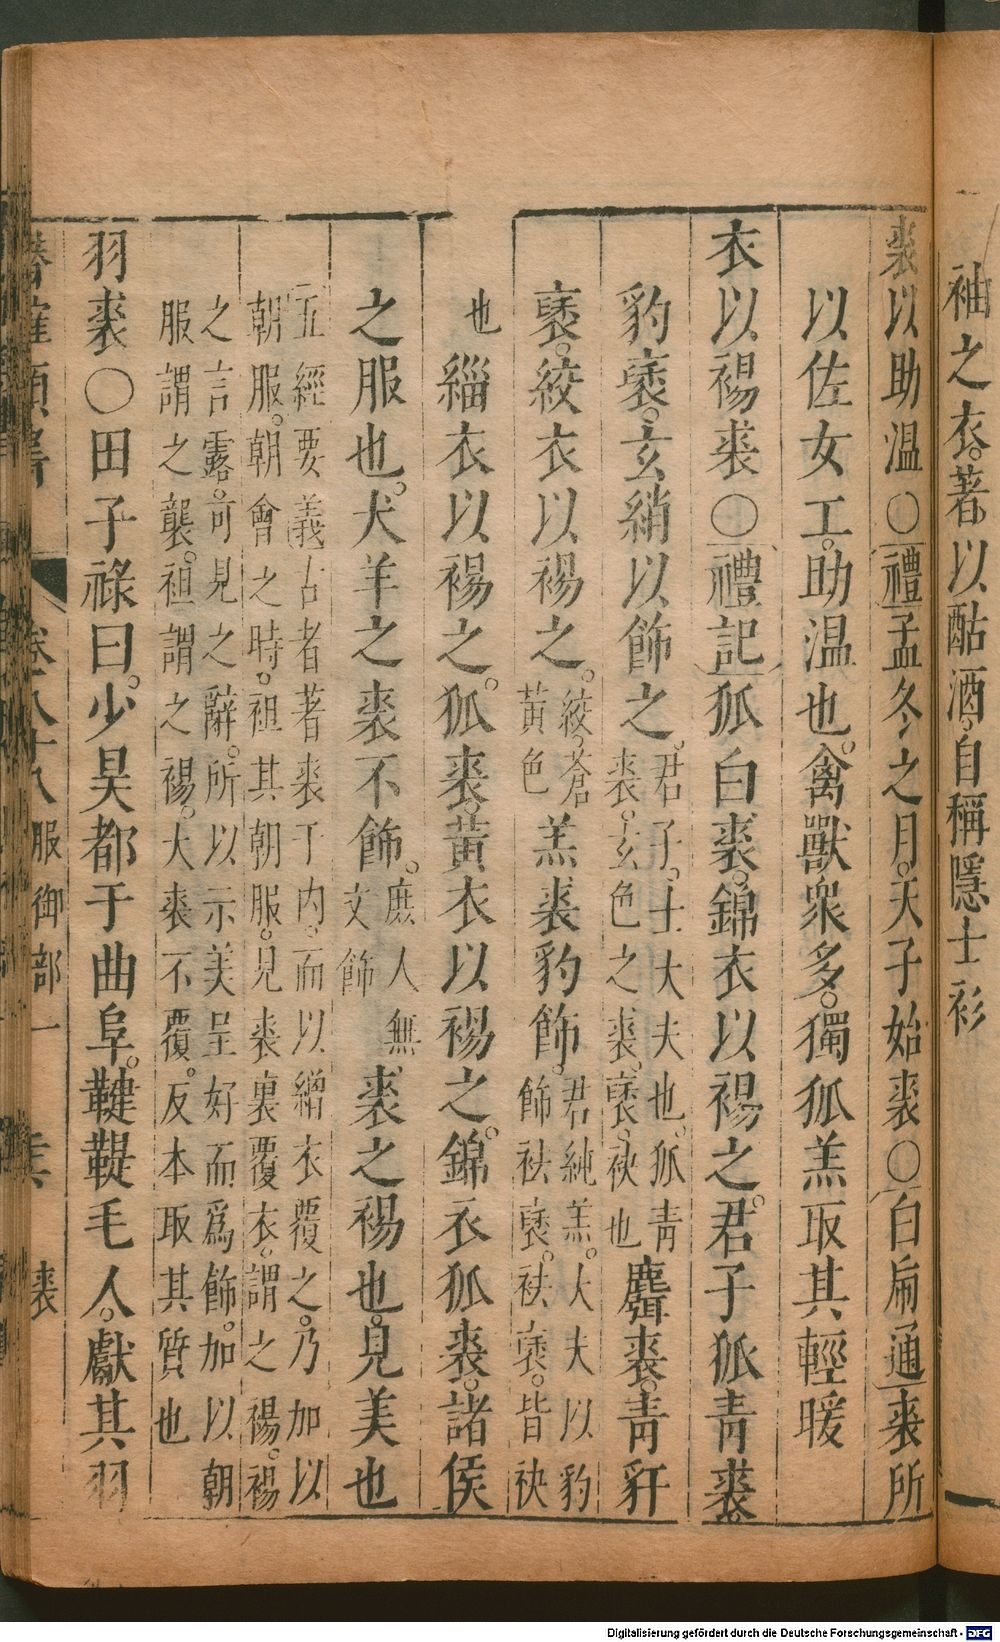 袖之衣。著以酤酒。自稱隱士衫
裘以助温〇禮孟冬之月。天子始裘〇白虎通裘所
以佐女工。助温也。禽獸衆多。獨狐羔取其輕暖
衣以裼裘〇禮記狐白裘。錦衣以裼之。君子狐青裘。
豹褎。玄綃以飾之。君子。士大夫也。狐青裘。玄色之裘。褎。袂也麛裘。青豻
褎。絞衣以裼之。絞。蒼黃色羔裘豹飾。君純羔。大夫以豹飾袪褎。袪褎。皆袂
也緇衣以裼之。狐裘。黃衣以裼之。錦衣狐裘。諸侯
之服也。犬羊之裘不飾。庶人無文飾裘之裼也。見美也
五經要義古者著裘于内。而以繒衣覆之。乃加以
朝服。朝會之時。袒其朝服。見裘裏覆衣。謂之裼。裼
之言露。可見之辭。所以示美呈好而爲飾。加以朝
服謂之襲。袒謂之裼。大裘不覆。反本取其質也
羽裘〇田子祿曰。少昊都于曲阜。鞬鞮毛人。獻其羽
卷八十八 服御部一 裘
Digitalisierung gefördert durch die Deutsche Forschungsgemeinschaft - DFG